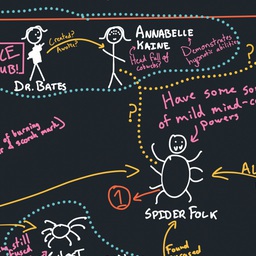 CE
UB!
Created?
Awake?
DR. BATES
ANNABELLE
KAINE
Head full of
cobwebs?
Demonstrates
hypnotic abilities
?
Have some so
of mild mind-c
powers
of burning
a scorch mark)
?
1
AL
SPIDER FOLK
still
Found